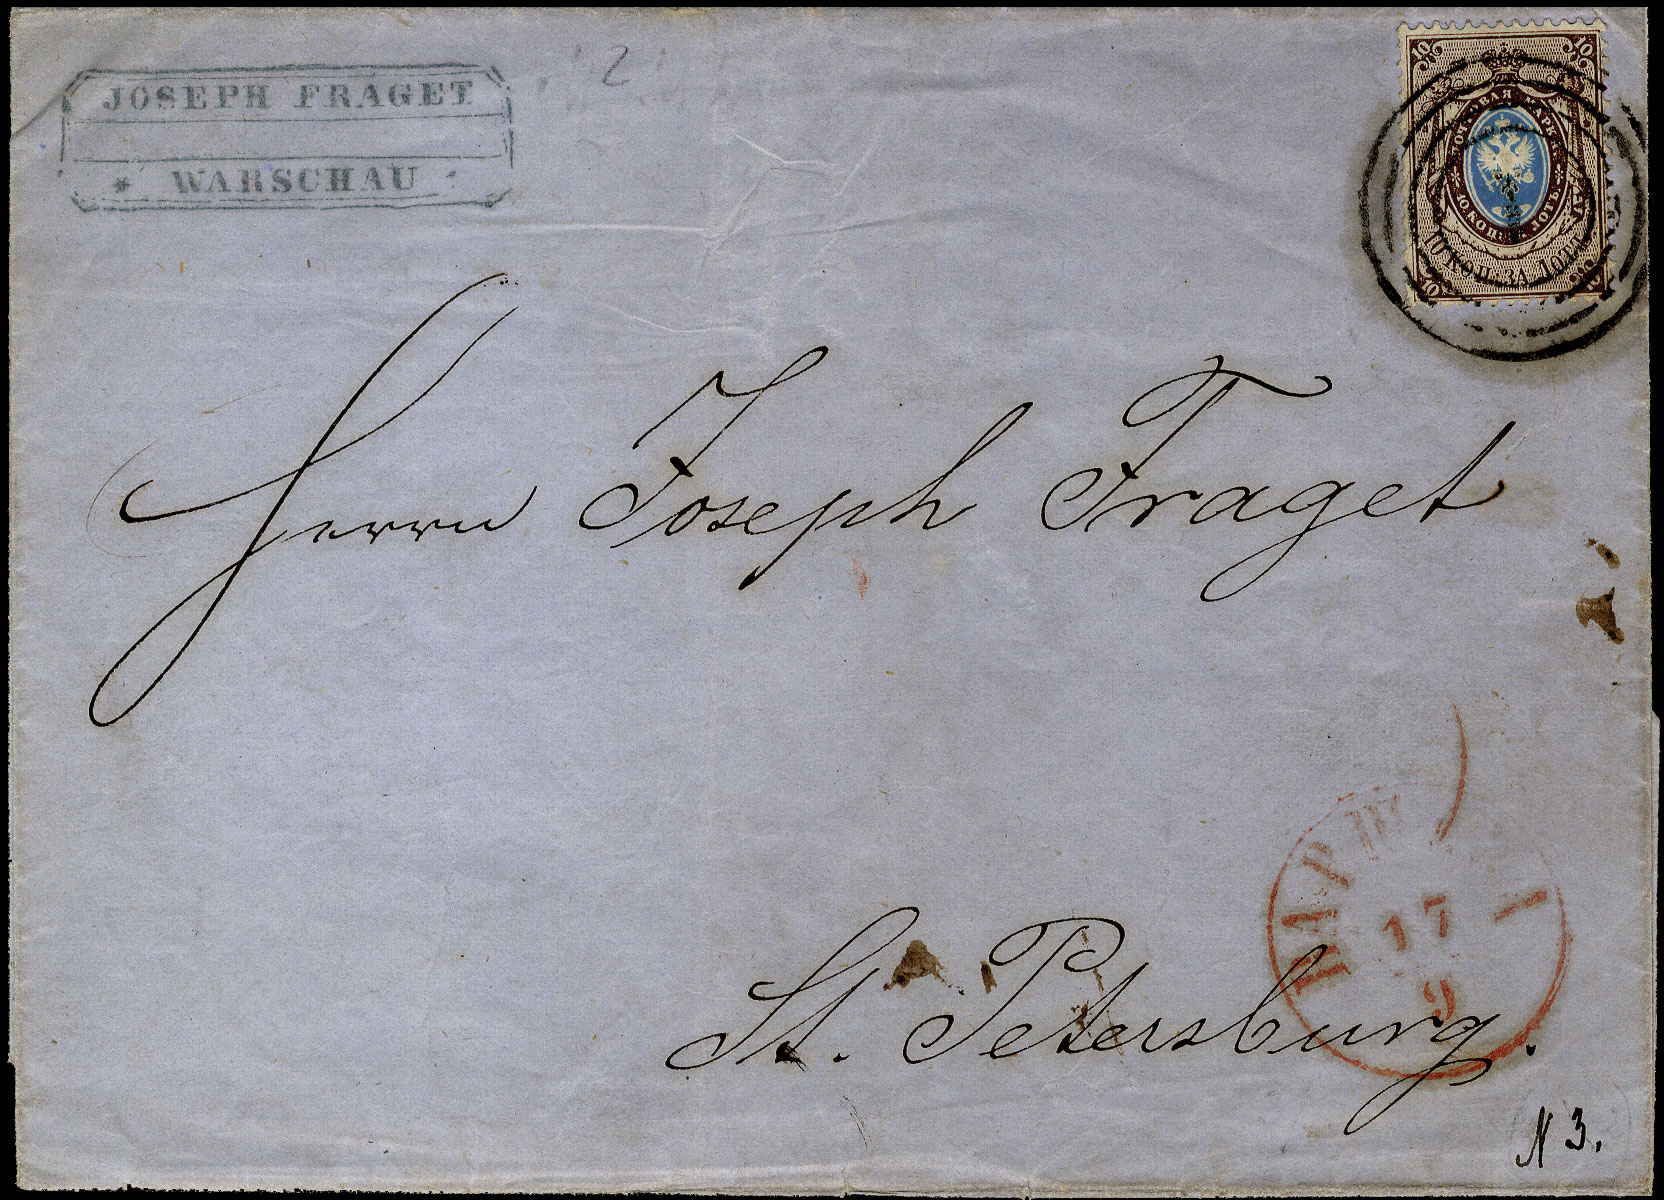 JOSEPH FRAGET
* WARSCHAU *
10 10
ПОЧТОВАЯ МАРКА
10 КОП. ЗА ЛОТЪ
10
Herrn Joseph Fraget
ВАРШ
17
9
St. Petersburg.
N 3.